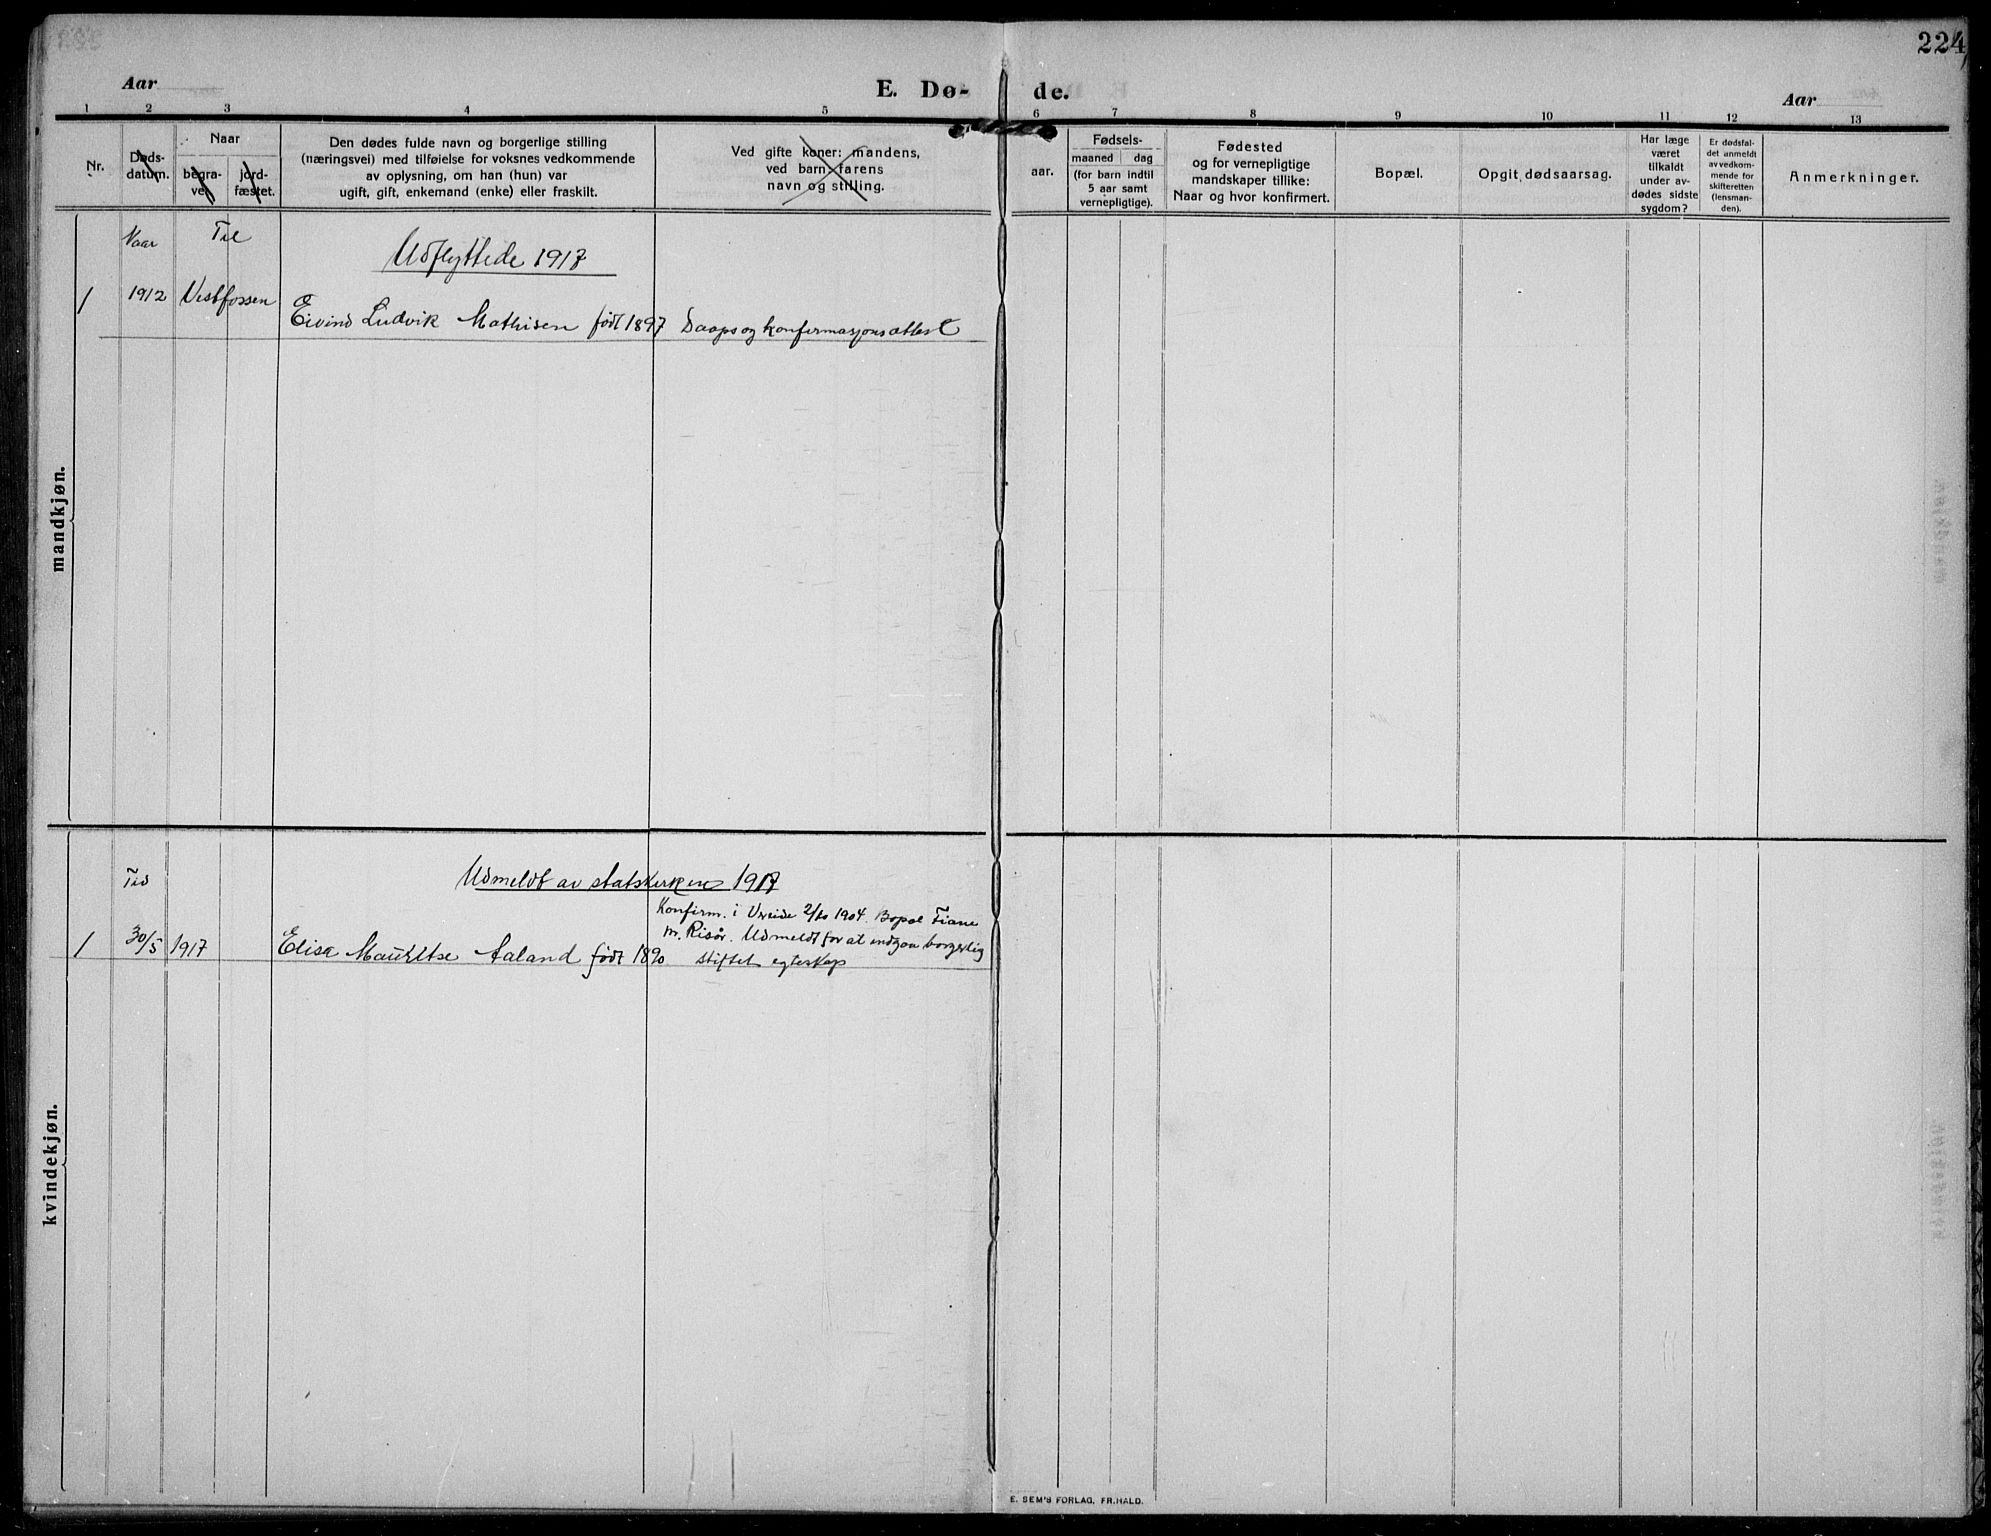 224
Aar
E. Dø-
de.
Aar
1 2 3 4 5 6 7 8 9 10 11 12 13
Nr.
Døds-
datum.
Naar
begra-
vet
jord-
fæstet.
Den dødes fulde navn og borgerlige stilling
(næringsvei) med tilføielse for voksnes vedkommende
av oplysning, om han (hun) var
ugift, gift, enkemand (enke) eller fraskilt.
Ved gifte koner: mandens,
ved barn: farens
navn og stilling.
aar.
Fødsels-
maaned dag
(for barn indtil
5 aar samt
vernepligtige).
Fødested
og for vernepligtige
mandskaper tillike:
Naar og hvor konfirmert.
Bopæl.
Opgit dødsaarsag.
Har læge
været
tilkaldt
under av-
dødes sidste
sygdom?
Er dødsfal-
det anmeldt
av vedkom-
mende for
skifteretten
(lensman-
den).
Anmerkninger.
Naar Til
Udflyttede 1917
1 1912 Vestfossen Eivind Ludvik Mathisen født 1897 Daaps og konfirmasjonsattest
mandkjøn.
Tid
Udmeldt av statskirken 1917
Konfirm. i 2/10 1904. Bopæl Fiane
pr. Risør. Udmeldt for at indgaa borgerlig
1 30/5 1917 Elise Aaland født 1890 stiftet egteskap
kvindekjøn.
E. SEM'S FORLAG, FR.HALD.